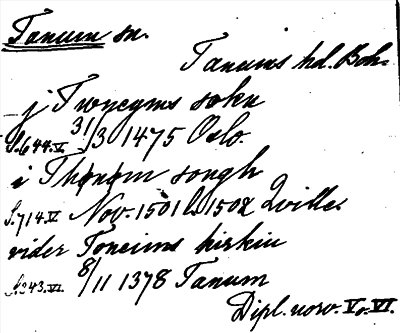 Tanum sn.
Tanums hd. Boh.
j Twneyms sokn
S. 644. V. 31/3 1475 Oslo.
i Thonom songh
S. 714. V. Nov. 1501 l. 1502 Qville.
vider Toneims kirkiu
S. 343. VI. 8/11 1378 Tanum
Dipl. norv. V. o. VI.